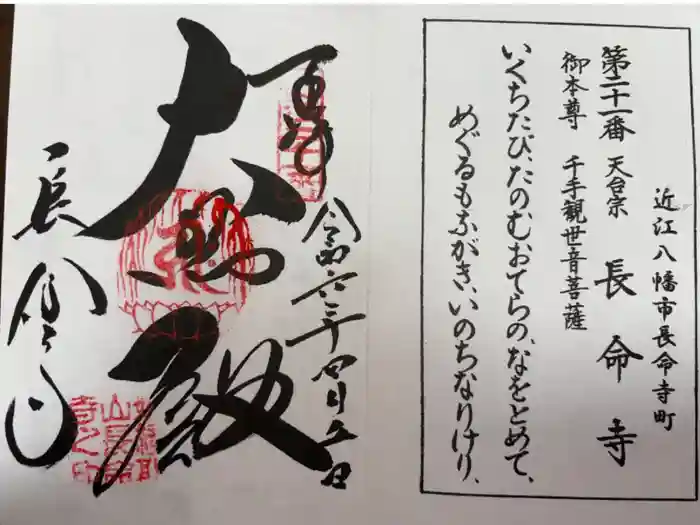 近江八幡市長命寺町
第三十一番 天台宗 長命寺
御本尊 千手観世音菩薩
いくちたび、たのむおてらの、なをとめて、
めぐるもふがき、いのちなりけり、
奉拝
令和六年四月五日
大悲殿
長命寺